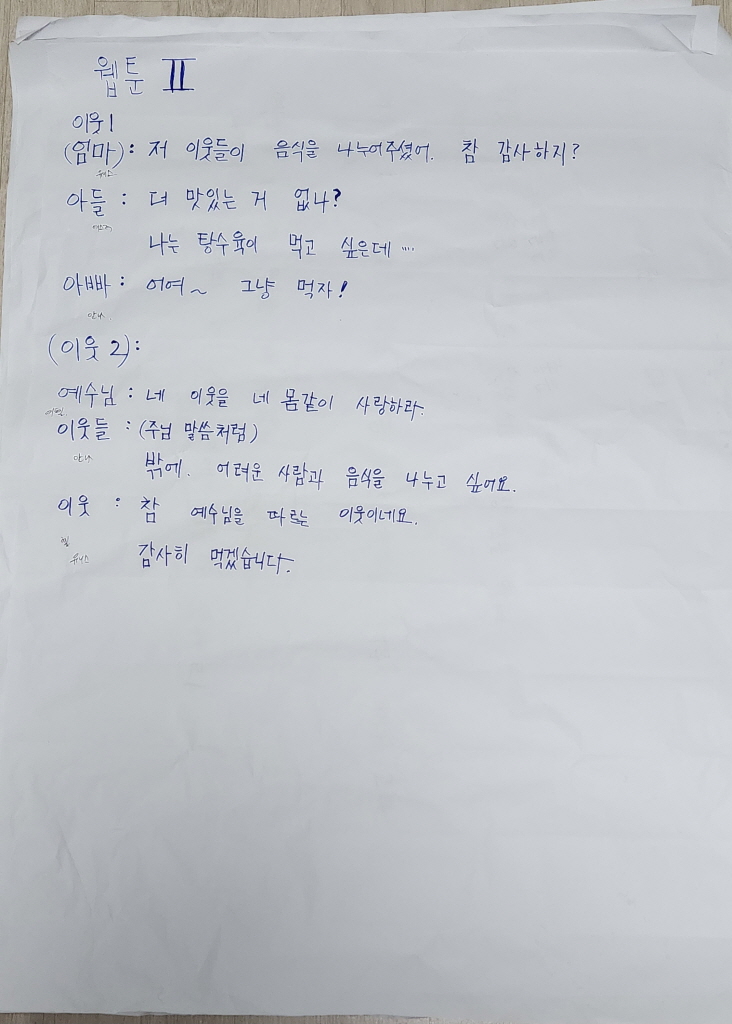 웹툰 II
이웃1
(엄마): 저 이웃들이 음식을 나누어주셨어. 참 감사하지?
아들 : 더 맛있는 거 없나?
나는 탕수육이 먹고 싶은데 ....
아빠 : 어여~ 그냥 먹자!
안나.
(이웃 2):
예수님 : 네 이웃을 네 몸같이 사랑하라.
이웃들 : (주님 말씀처럼)
안나
밖에. 어려운 사람과 음식을 나누고 싶어요.
이웃 : 참 예수님을 따르는 이웃이네요.
유니스
감사히 먹겠습니다.